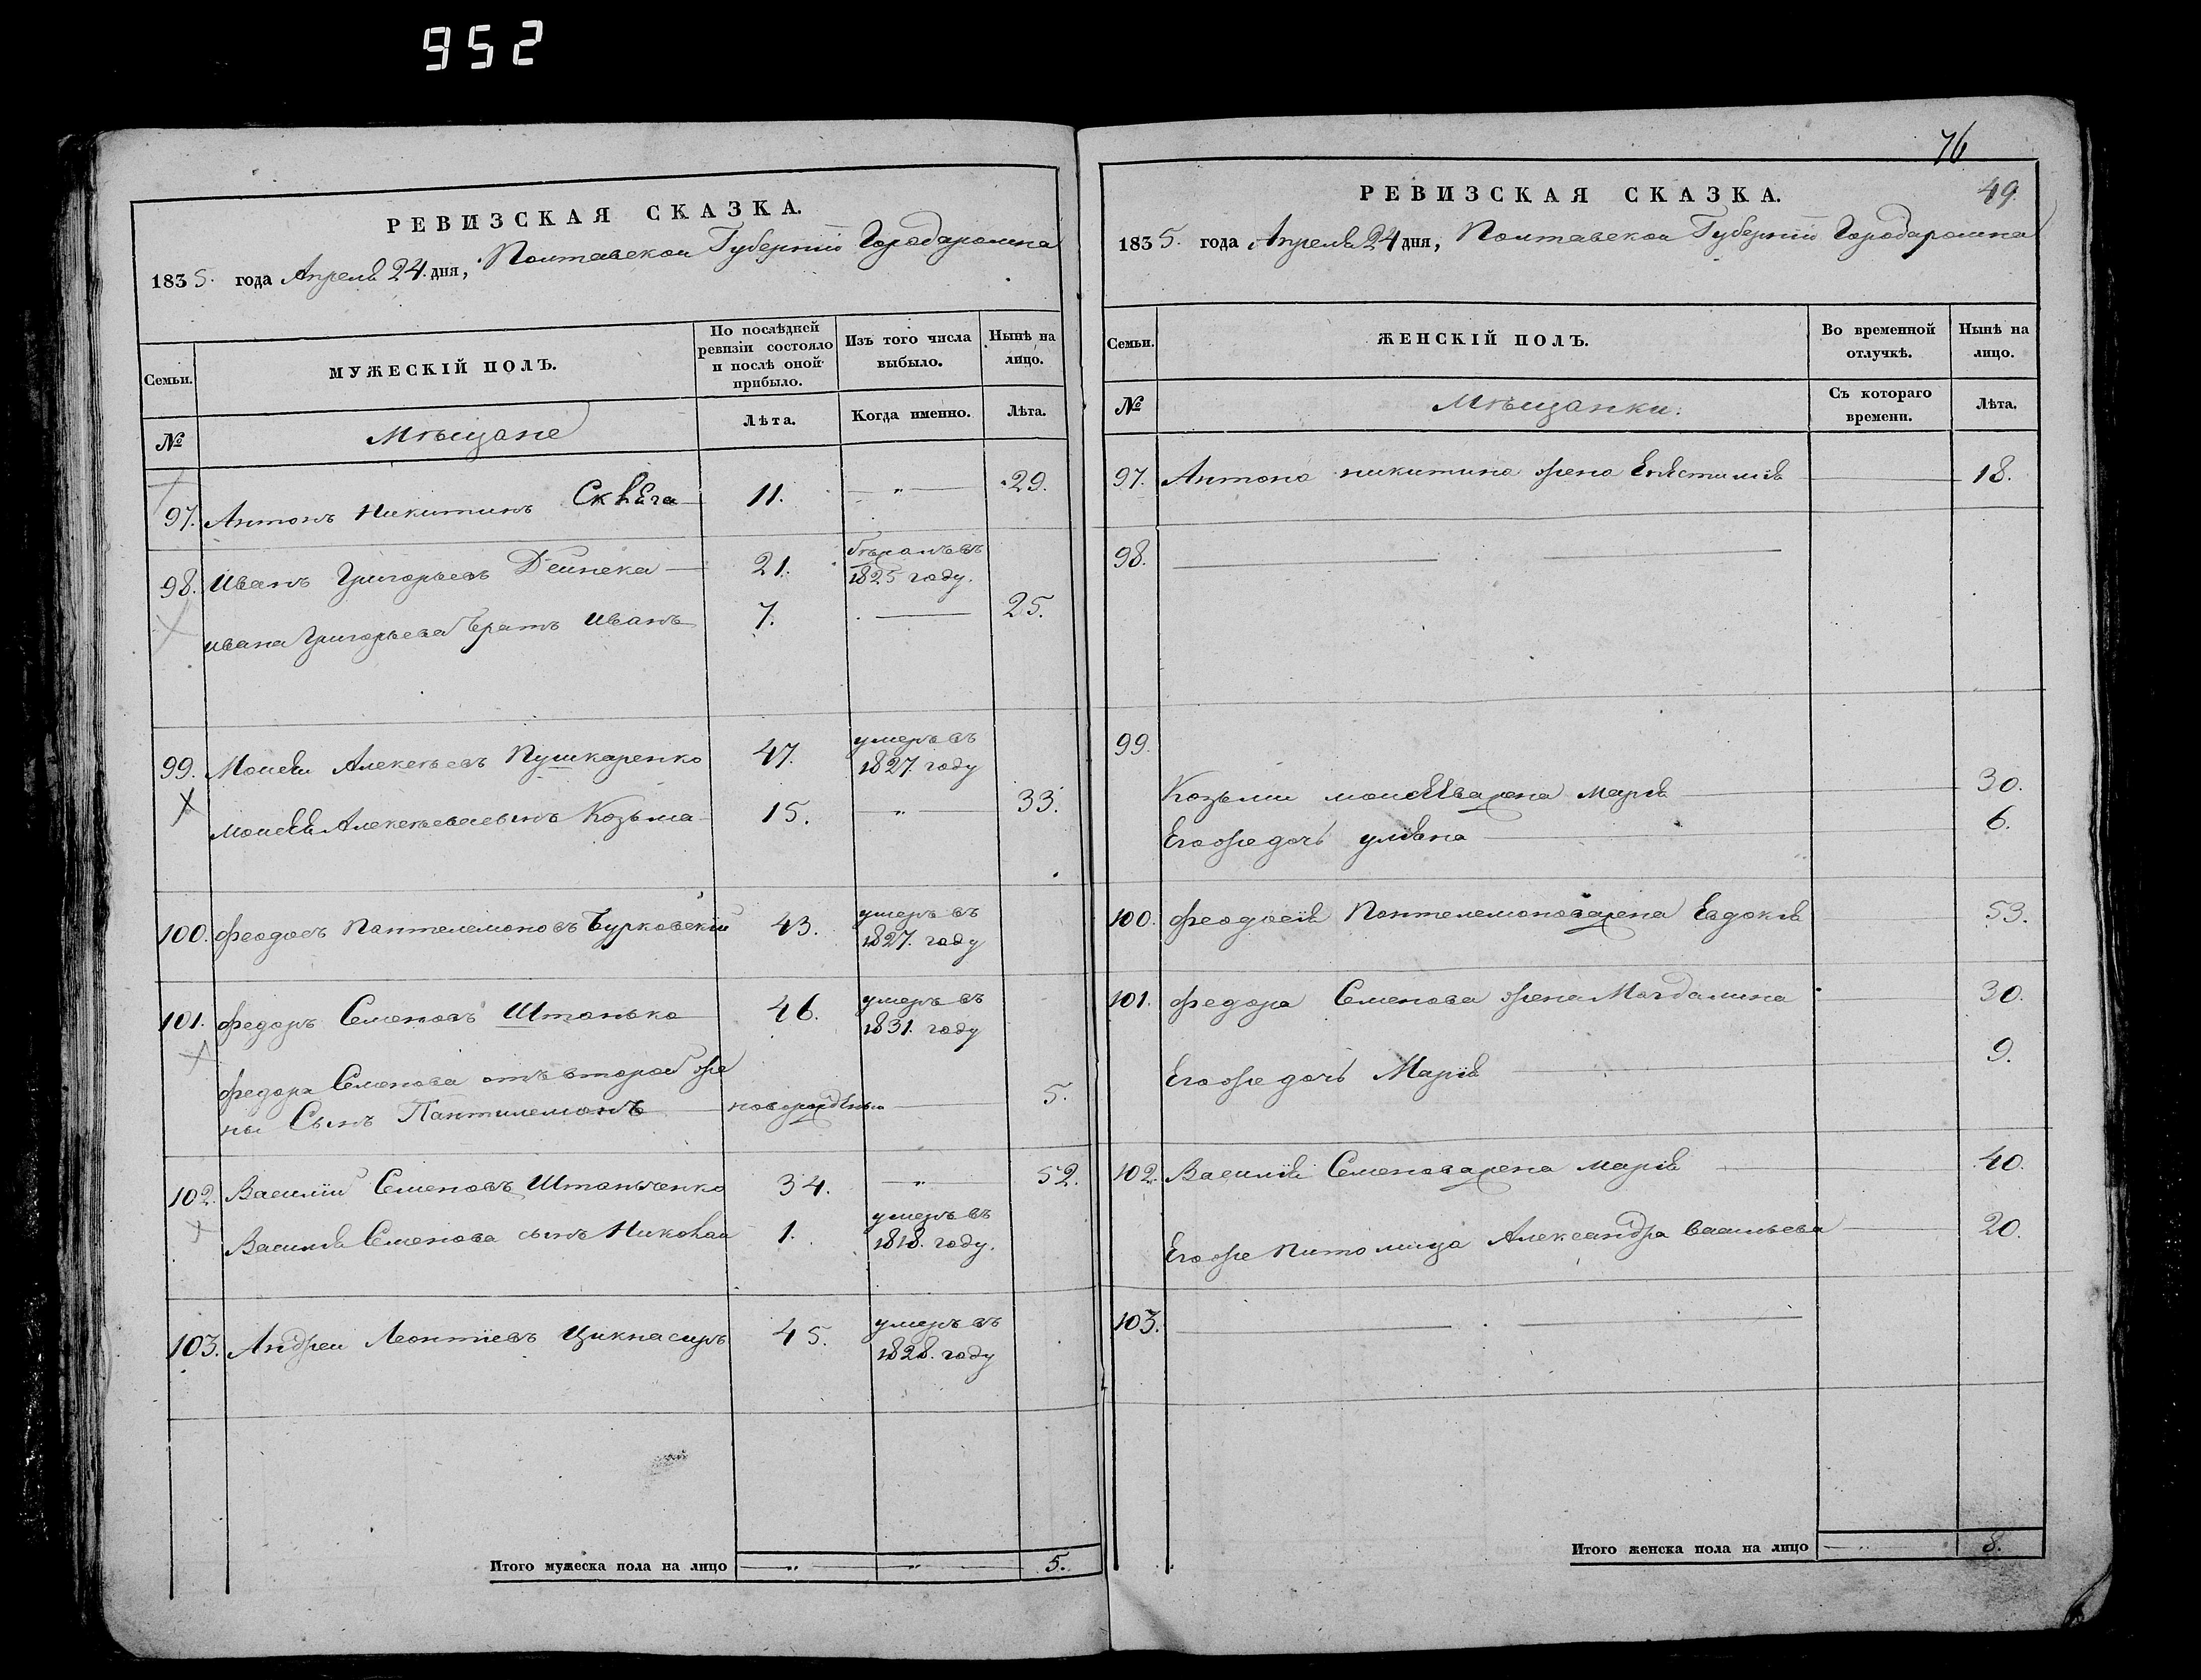 952
РЕВИЗСКАЯ СКАЗКА.
1835. года Апреля 24. дня, Полтавской Губернiи Города Ромна
Семьи.
МУЖЕСКIЙ ПОЛЪ.
По послѣдней ревизiи состояло и послѣ оной прибыло.
Изъ того числа выбыло.
Нынѣ на лицо.
№
Мѣщане
Лѣта.
Когда именно.
Лѣта.
97. Антонъ Никитинъ 11. — „ — 29.
98. Иванъ Григорьевъ Дейнека 21. 1825 году.
Ивана Григорьева братъ Иванъ 7. — 25.
99. Моисей Алексѣевъ Пушкаренко 47. умеръ въ 1827. году
Моисея Алексѣева сынъ Козьма 15. — „ — 33.
100. Феодосъ Пантелемоновъ Бурковскiй 43. умеръ въ 1827. году
101. Федоръ Семеновъ Штанько 46. умеръ въ 1831. году
Федора Семенова отъ второй же
ны Сынъ Пантилемонъ новорожденъ — 5.
102. Василiй Семеновъ Штанченко 34. — „ — 52.
Василiя Семенова сынъ Николай 1. умеръ въ 1818. году.
103. Андрей Леонтiевъ 45. умеръ въ 1828. году
Итого мужеска пола на лицо — „ — „ — 5.
76
49.
РЕВИЗСКАЯ СКАЗКА.
1835. года Апреля 24 дня, Полтавской Губернiи Города Ромна
Семьи.
ЖЕНСКIЙ ПОЛЪ.
Во временной отлучкѣ.
Нынѣ на лицо.
№
Мѣщанки:
Съ котораго времени.
Лѣта.
97. Антона Никитина жена 18.
98. —
99.
Козьмы Моисеева жена Марiя 30.
Его же дочь Улiяна 6.
100. Феодосiя Пантелемонова жена Евдокiя 53.
101. Федора Семенова жена Магдалина 30.
Его же дочь Марiя 9.
102. Василiя Семенова жена Марiя 40.
Его же питомица Александра Васильева 20.
103. —
Итого женска пола на лицо — 8.